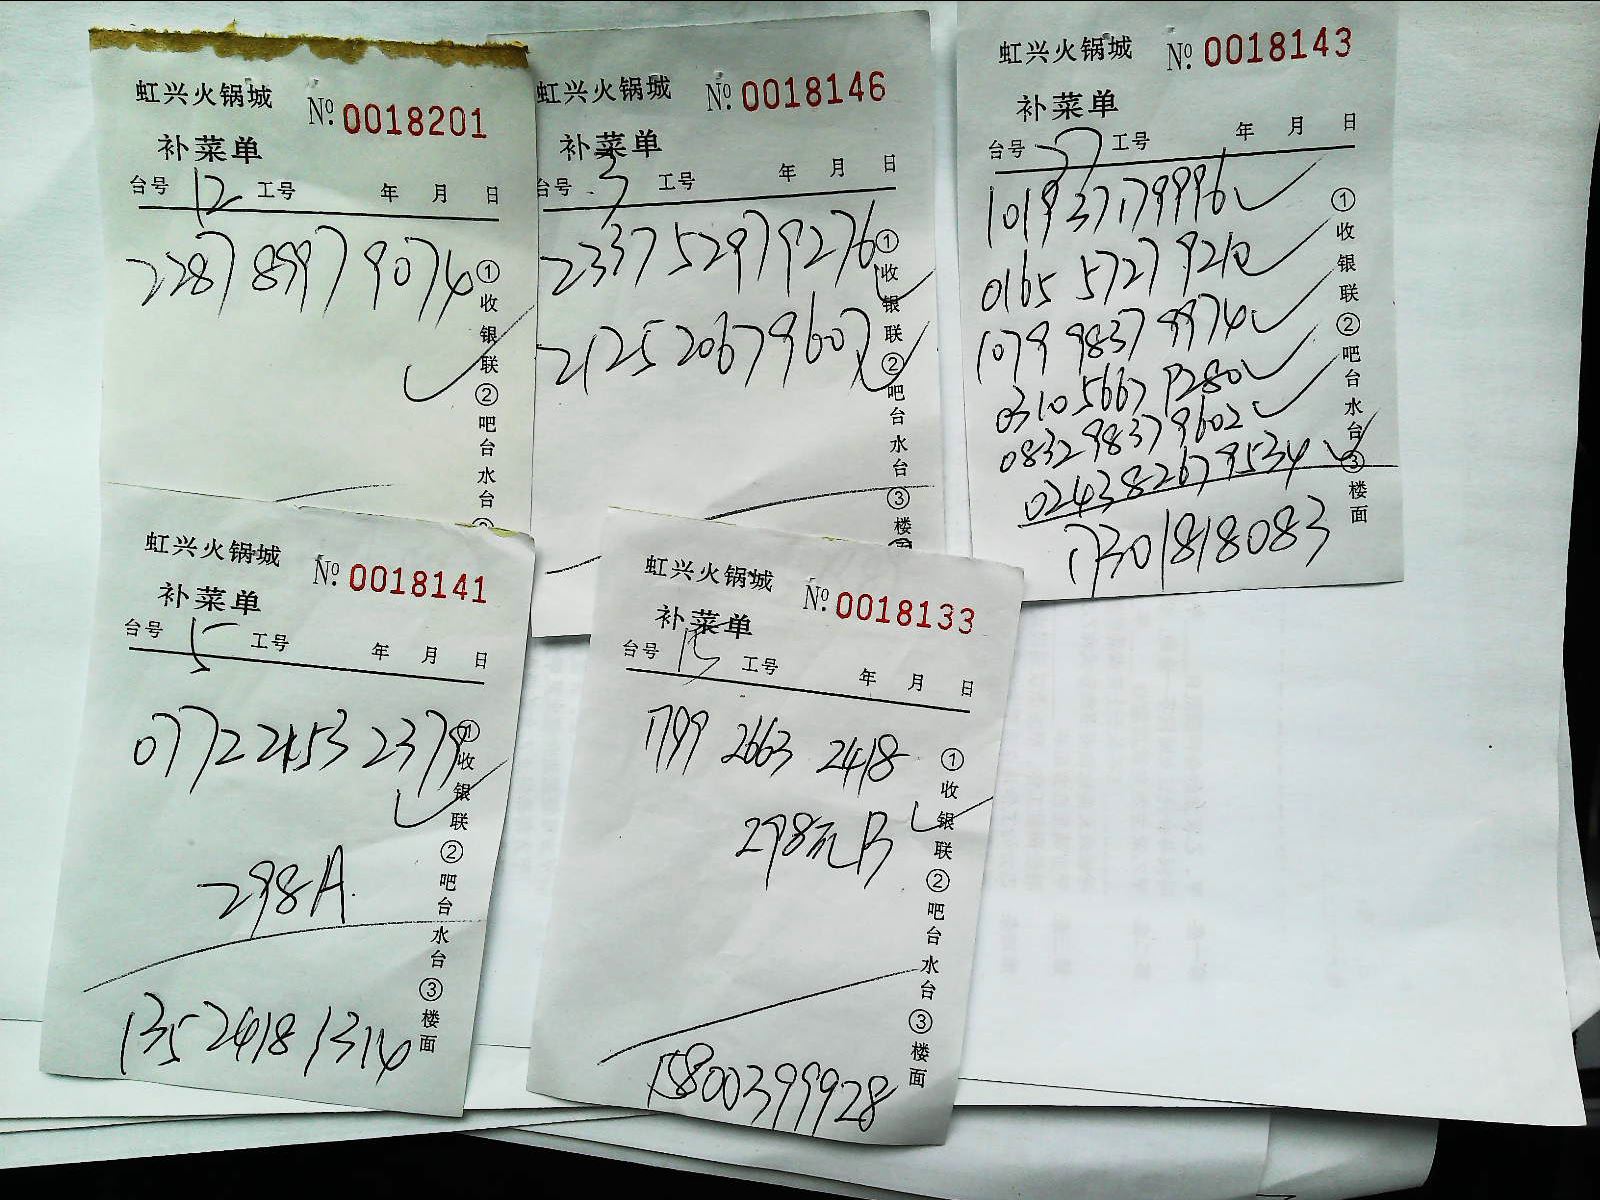 虹兴火锅城 № 0018201
补菜单
台号 12 工号 年 月 日
2287 8997 9074
①收银联②吧台水台
虹兴火锅城 № 0018146
补菜单
台号 3 工号 年 月 日
2337 5297 9276
2125 2067 9607
①收银联②吧台水台③楼
虹兴火锅城 № 0018143
补菜单
台号 37 工号 年 月 日
1019 3717 9996
0165 5727
1079 9837 9974
0310 5667
0832 9837 9602
0243 8267 9534
17301818083
①收银联②吧台水台③楼面
虹兴火锅城 № 0018141
补菜单
台号 5 工号 年 月 日
0772 2153 2379
298A
135 2418 1314
①收银联②吧台水台③楼面
虹兴火锅城 № 0018133
补菜单
台号 15 工号 年 月 日
1799 2663 2418
298元B
15800399928
①收银联②吧台水台③楼面